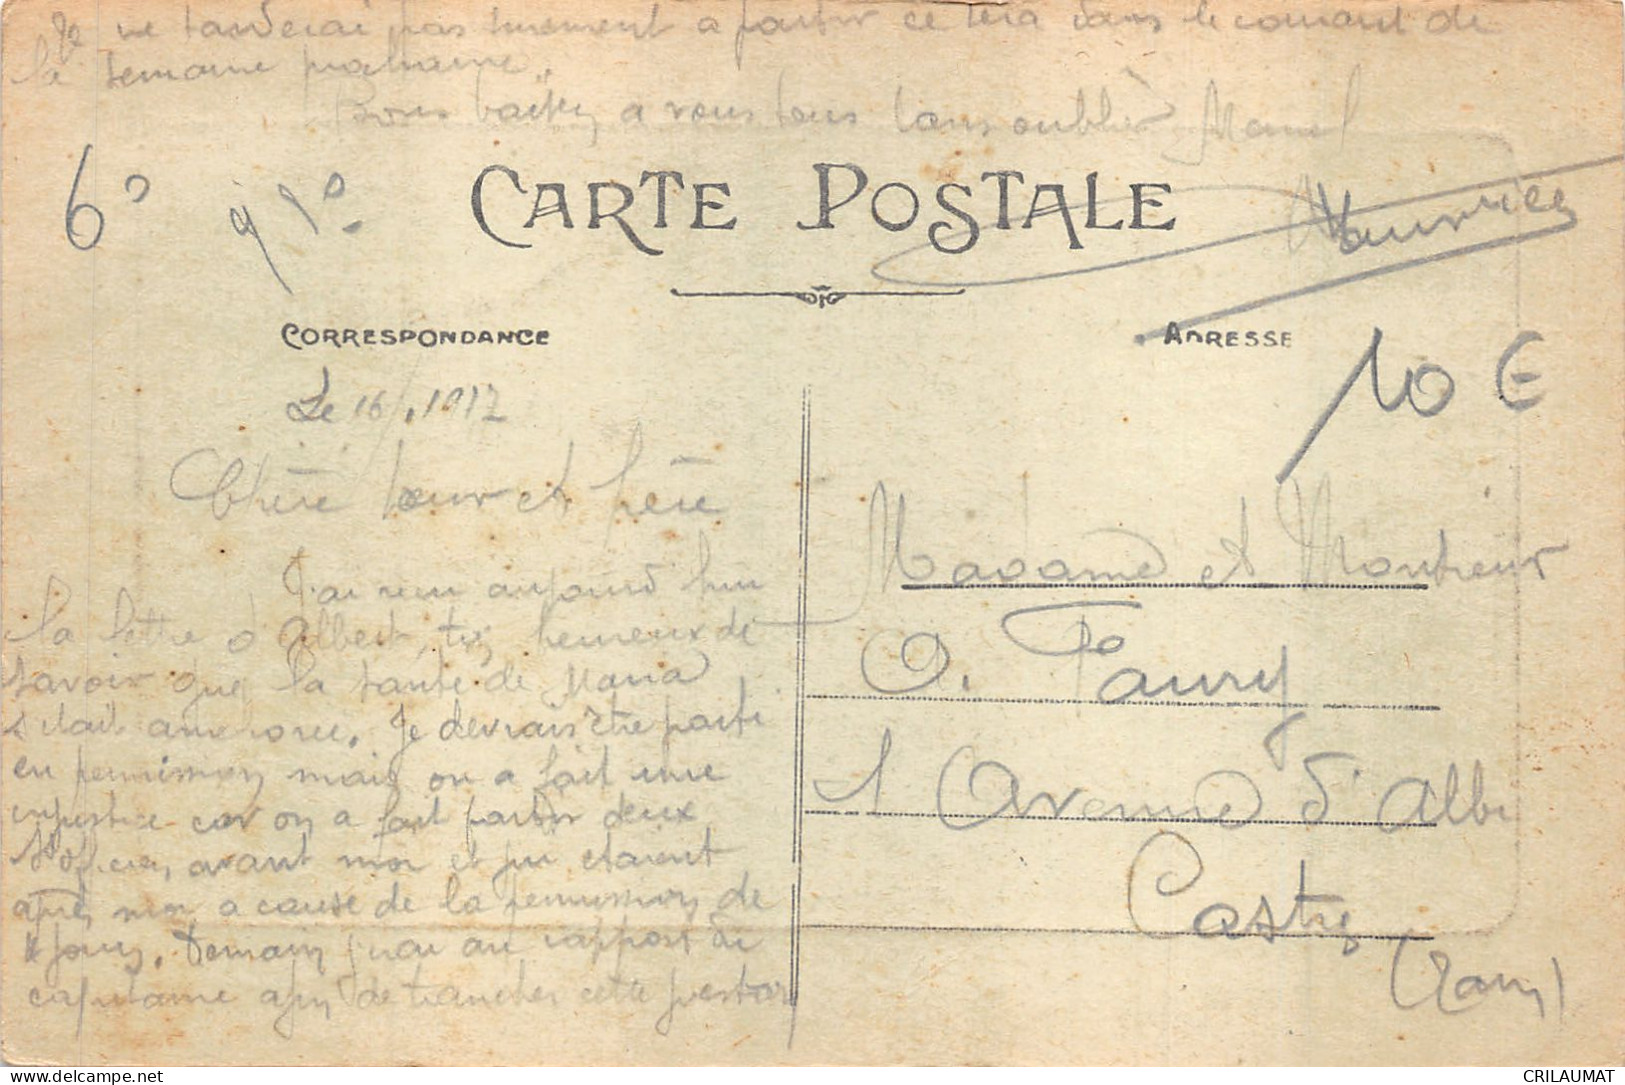 Je ne tarderai pas surement a partir ce sera dans le courant de
la semaine prochaine.
Bons baisers a vous tous sans oublier Marcel
6° 1°
CARTE POSTALE
CORRESPONDANCE
ADRESSE
10 €
Le 16 1917
Chère soeur et frère
J'ai reçu aujourd hui
la lettre d'Albert, très heureux de
savoir que la tante de Maria
s'etait amelioree. Je devrais être parti
en permission mais on a fait une
injustice car on a fait partir deux
S/officiers avant moi et qui etaient
après moi a cause de la permission de
4 jours. Demain j'irai au rapport du
capitaine afin de trancher cette question
Madame et Monsieur
O. Faury
1 Avenue d'Albi
Castres
(Tarn)
CRILAUMAT